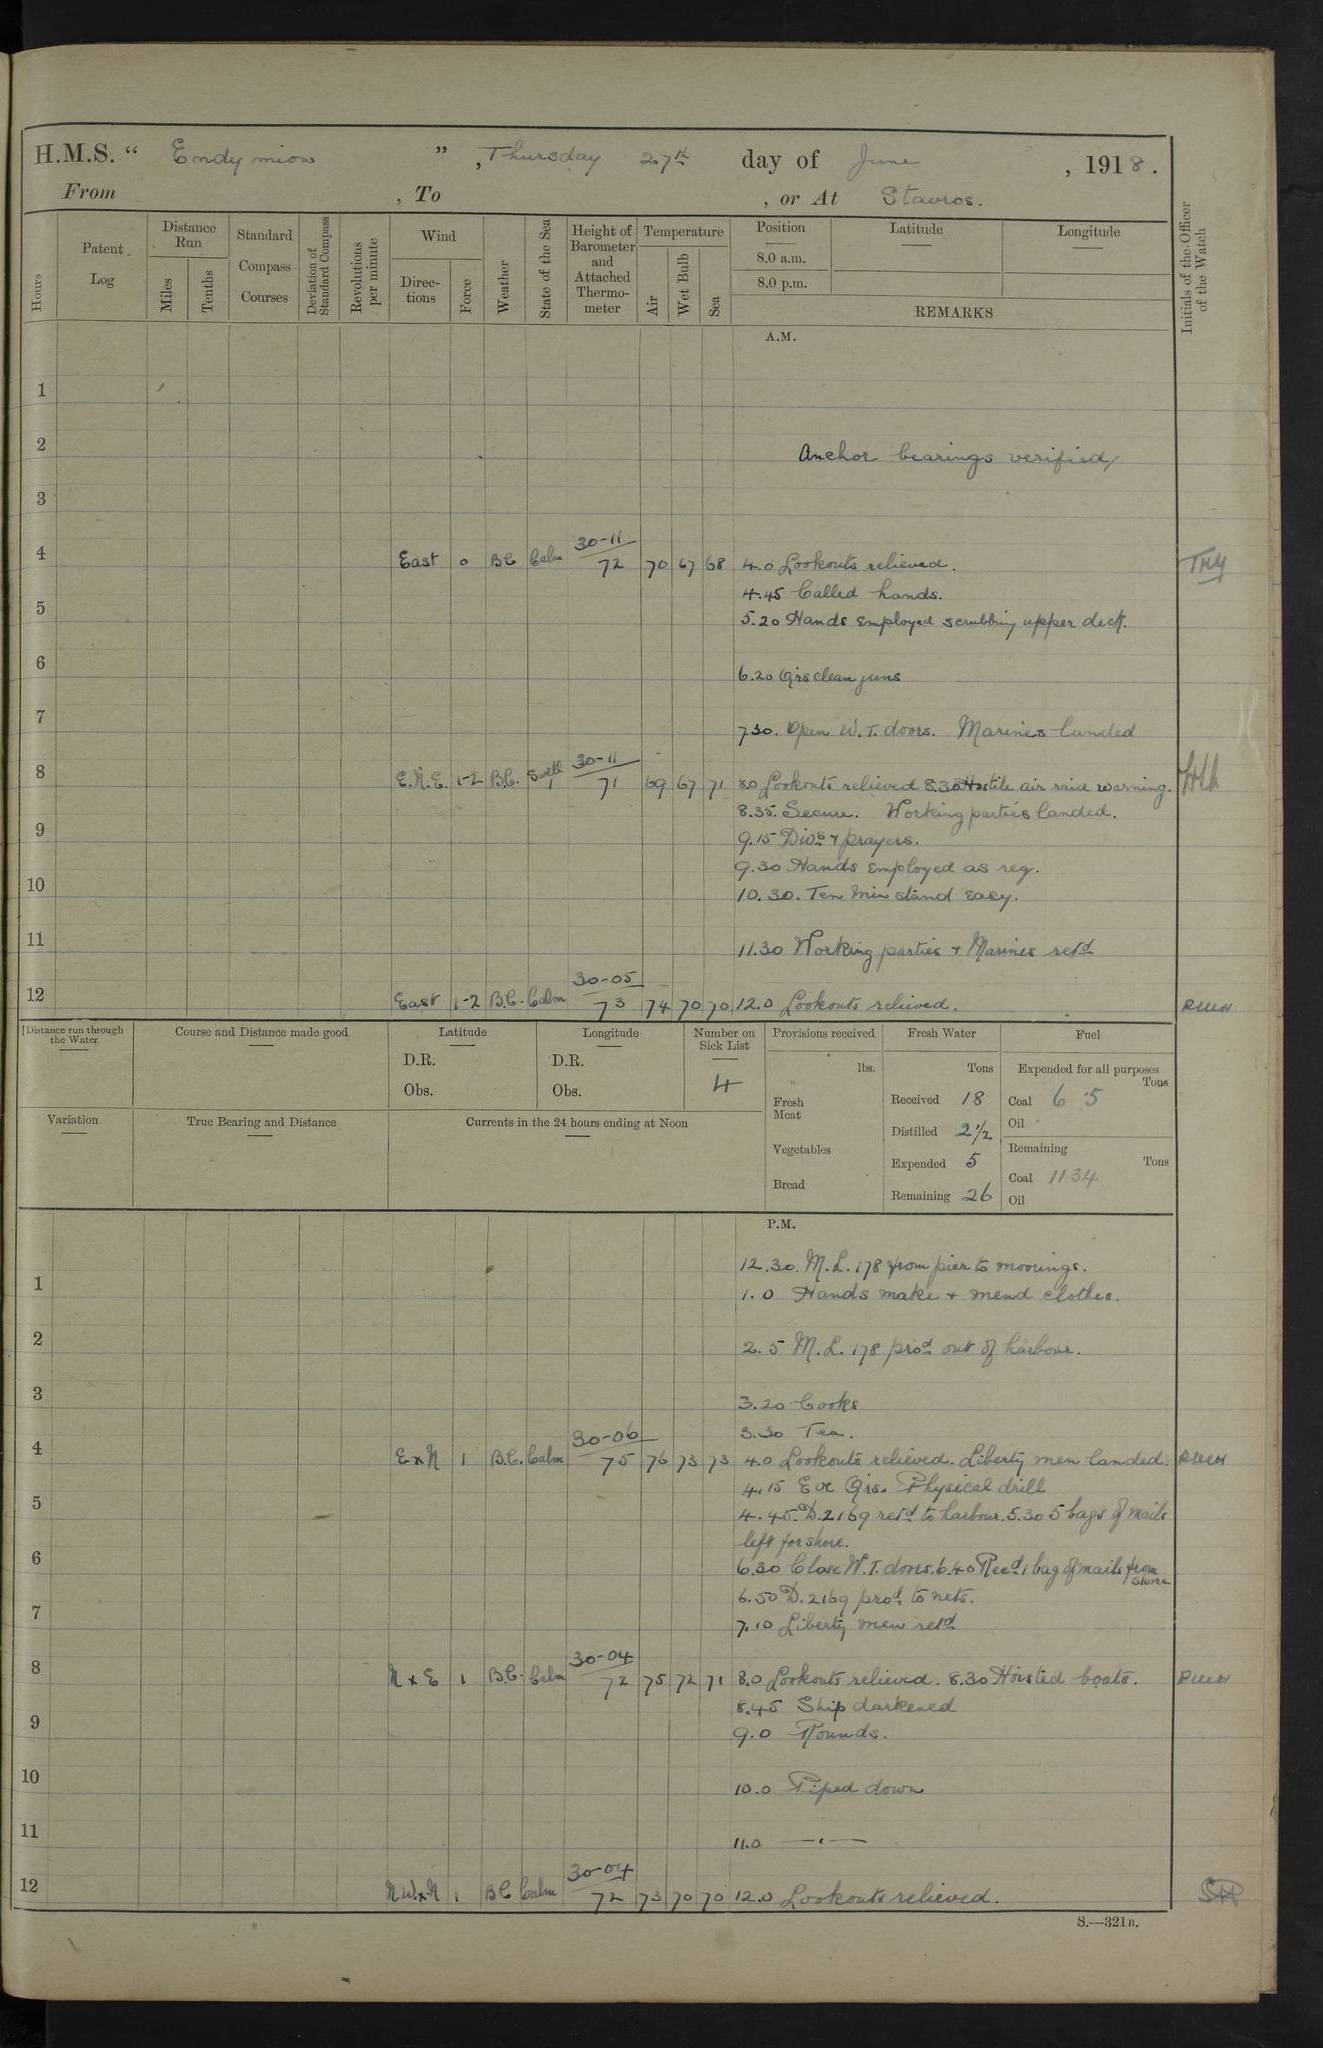 H.M.S. " Endymion ", Thursday 27th day of June, 1918.
From , To , or At Stavros.
Hours
Patent Log
Distance Run
Miles
Tenths
Standard Compass Courses
Deviation of Standard Compass
Revolutions per minute
Wind
Direc-tions
Force
Weather
State of the Sea
Height of Barometer and Attached Thermo-meter
Temperature
Air
Wet Bulb
Sea
Position
8.0 a.m.
8.0 p.m.
Latitude
Longitude
REMARKS
Initials of the Officer of the Watch
A.M.
1
2
Anchor bearings verified
3
4 East 0 BC Calm 30-11 72 70 67 68 4.0 Lookouts relieved.
4.45 Called hands.
5
5.20 Hands employed scrubbing upper deck.
6
6.20 Qrs clean guns
7
7.30. Open W.T. doors. Marines landed
8 E.N.E. 1-2 B.C. Swell 30-11 71 69 67 71 8.0 Lookouts relieved 8.30 Hostile air raid warning.
8.35. Secure. Working parties landed.
9
9.15 Divs & prayers.
9.30 Hands employed as reg.
10
10.30. Ten Min stand easy.
11
11.30 Working parties & Marines retd
12 East 1-2 B.C. Calm 30-05 73 74 70 70 12.0 Lookouts relieved. RWH
Distance run through the Water
Course and Distance made good
Latitude
D.R.
Obs.
Longitude
D.R.
Obs.
Number on Sick List
4
Provisions received
lbs.
Fresh Meat
Vegetables
Bread
Fresh Water
Tons
Received 18
Distilled 2 1/2
Expended 5
Remaining 26
Fuel
Expended for all purposes
Tons
Coal 6.5
Oil
Remaining
Tons
Coal 1134
Oil
Variation
True Bearing and Distance
Currents in the 24 hours ending at Noon
P.M.
12.30. M.L. 178 from pier to moorings.
1
1.0 Hands make & mend clothes.
2
2.5 M.L. 178 procd out of harbour.
3
3.20 Cooks
3.30 Tea.
4 ExN 1 B.C. Calm 30-06 75 76 73 73 4.0 Lookouts relieved. Liberty men landed. RWH
4.15 Eve Qrs. Physical drill
5
4.45. D.2169 retd to harbour. 5.30 5 bags of mails
left for shore.
6
6.30 Close W.T. doors. 6.40 Recd 1 bag of mails from shore
6.50 D.2169 procd to nets.
7
7.10 Liberty men retd
8 NxE 1 B.C. Calm 30-04 72 75 72 71 8.0 Lookouts relieved. 8.30 Hoisted boats. RWH
8.45 Ship darkened
9
9.0 Rounds.
10
10.0 Piped down
11
11.0 —"—
12 NWxN 1 BC Calm 30-04 72 73 70 70 12.0 Lookouts relieved.
S.—321B.